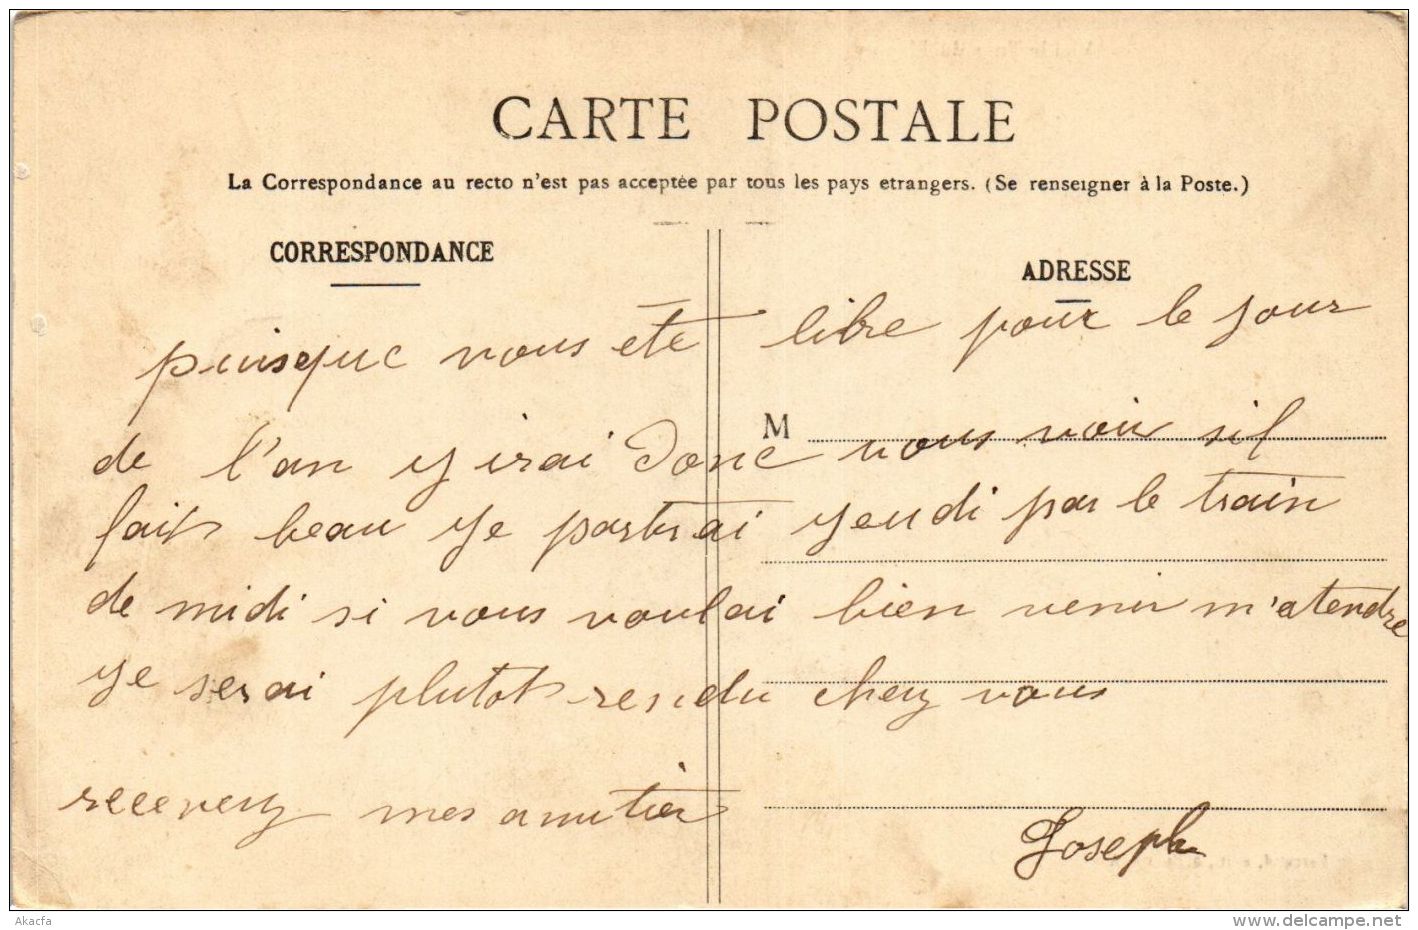 CARTE POSTALE
La Correspondance au recto n'est pas acceptée par tous les pays etrangers. (Se renseigner à la Poste.)
CORRESPONDANCE
ADRESSE
puisque vous ete libre pour le jour
M
de l'an y irai donc vous voir sil
fait beau je partrai jeudi par le train
de midi si vous voulai bien venir m'atendre
je serai plutot rendu chez vous
recevez mes amitiés
Joseph
Akacfa
www.delcampe.net